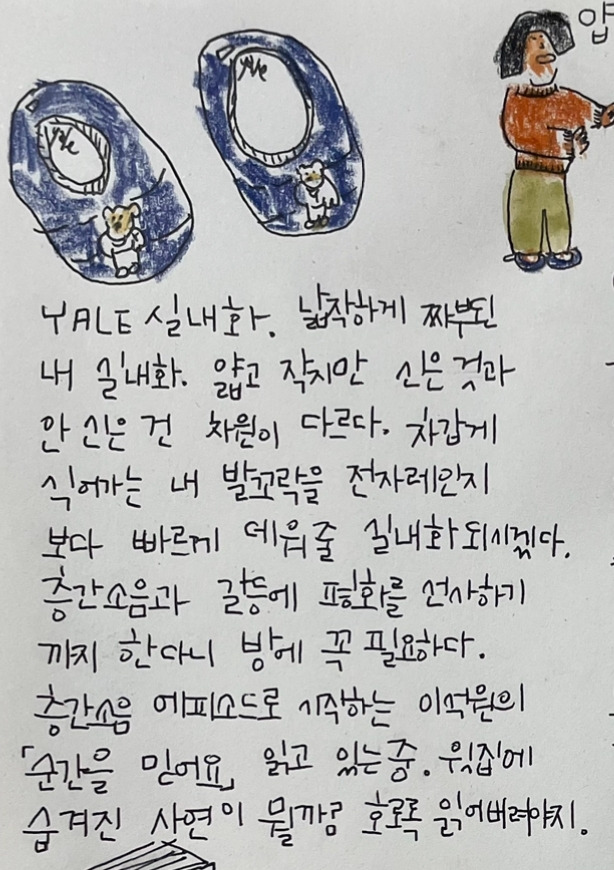 얍
Yale
Yale
YALE 실내화. 납작하게 짜부된
내 실내화. 얇고 작지만 신은 것과
안 신은 건 차원이 다르다. 차갑게
식어가는 내 발꼬락을 전자레인지
보다 빠르게 데워줄 실내화 되시겠다.
층간소음과 갈등에 평화를 선사하기
까지 한다니 방에 꼭 필요하다.
층간소음 에피소드로 시작하는 이석원의
「순간을 믿어요」 읽고 있는 중. 윗집에
숨겨진 사연이 뭘까롱 호로록 읽어버려야지.